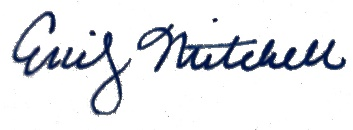 Emily Mitchell